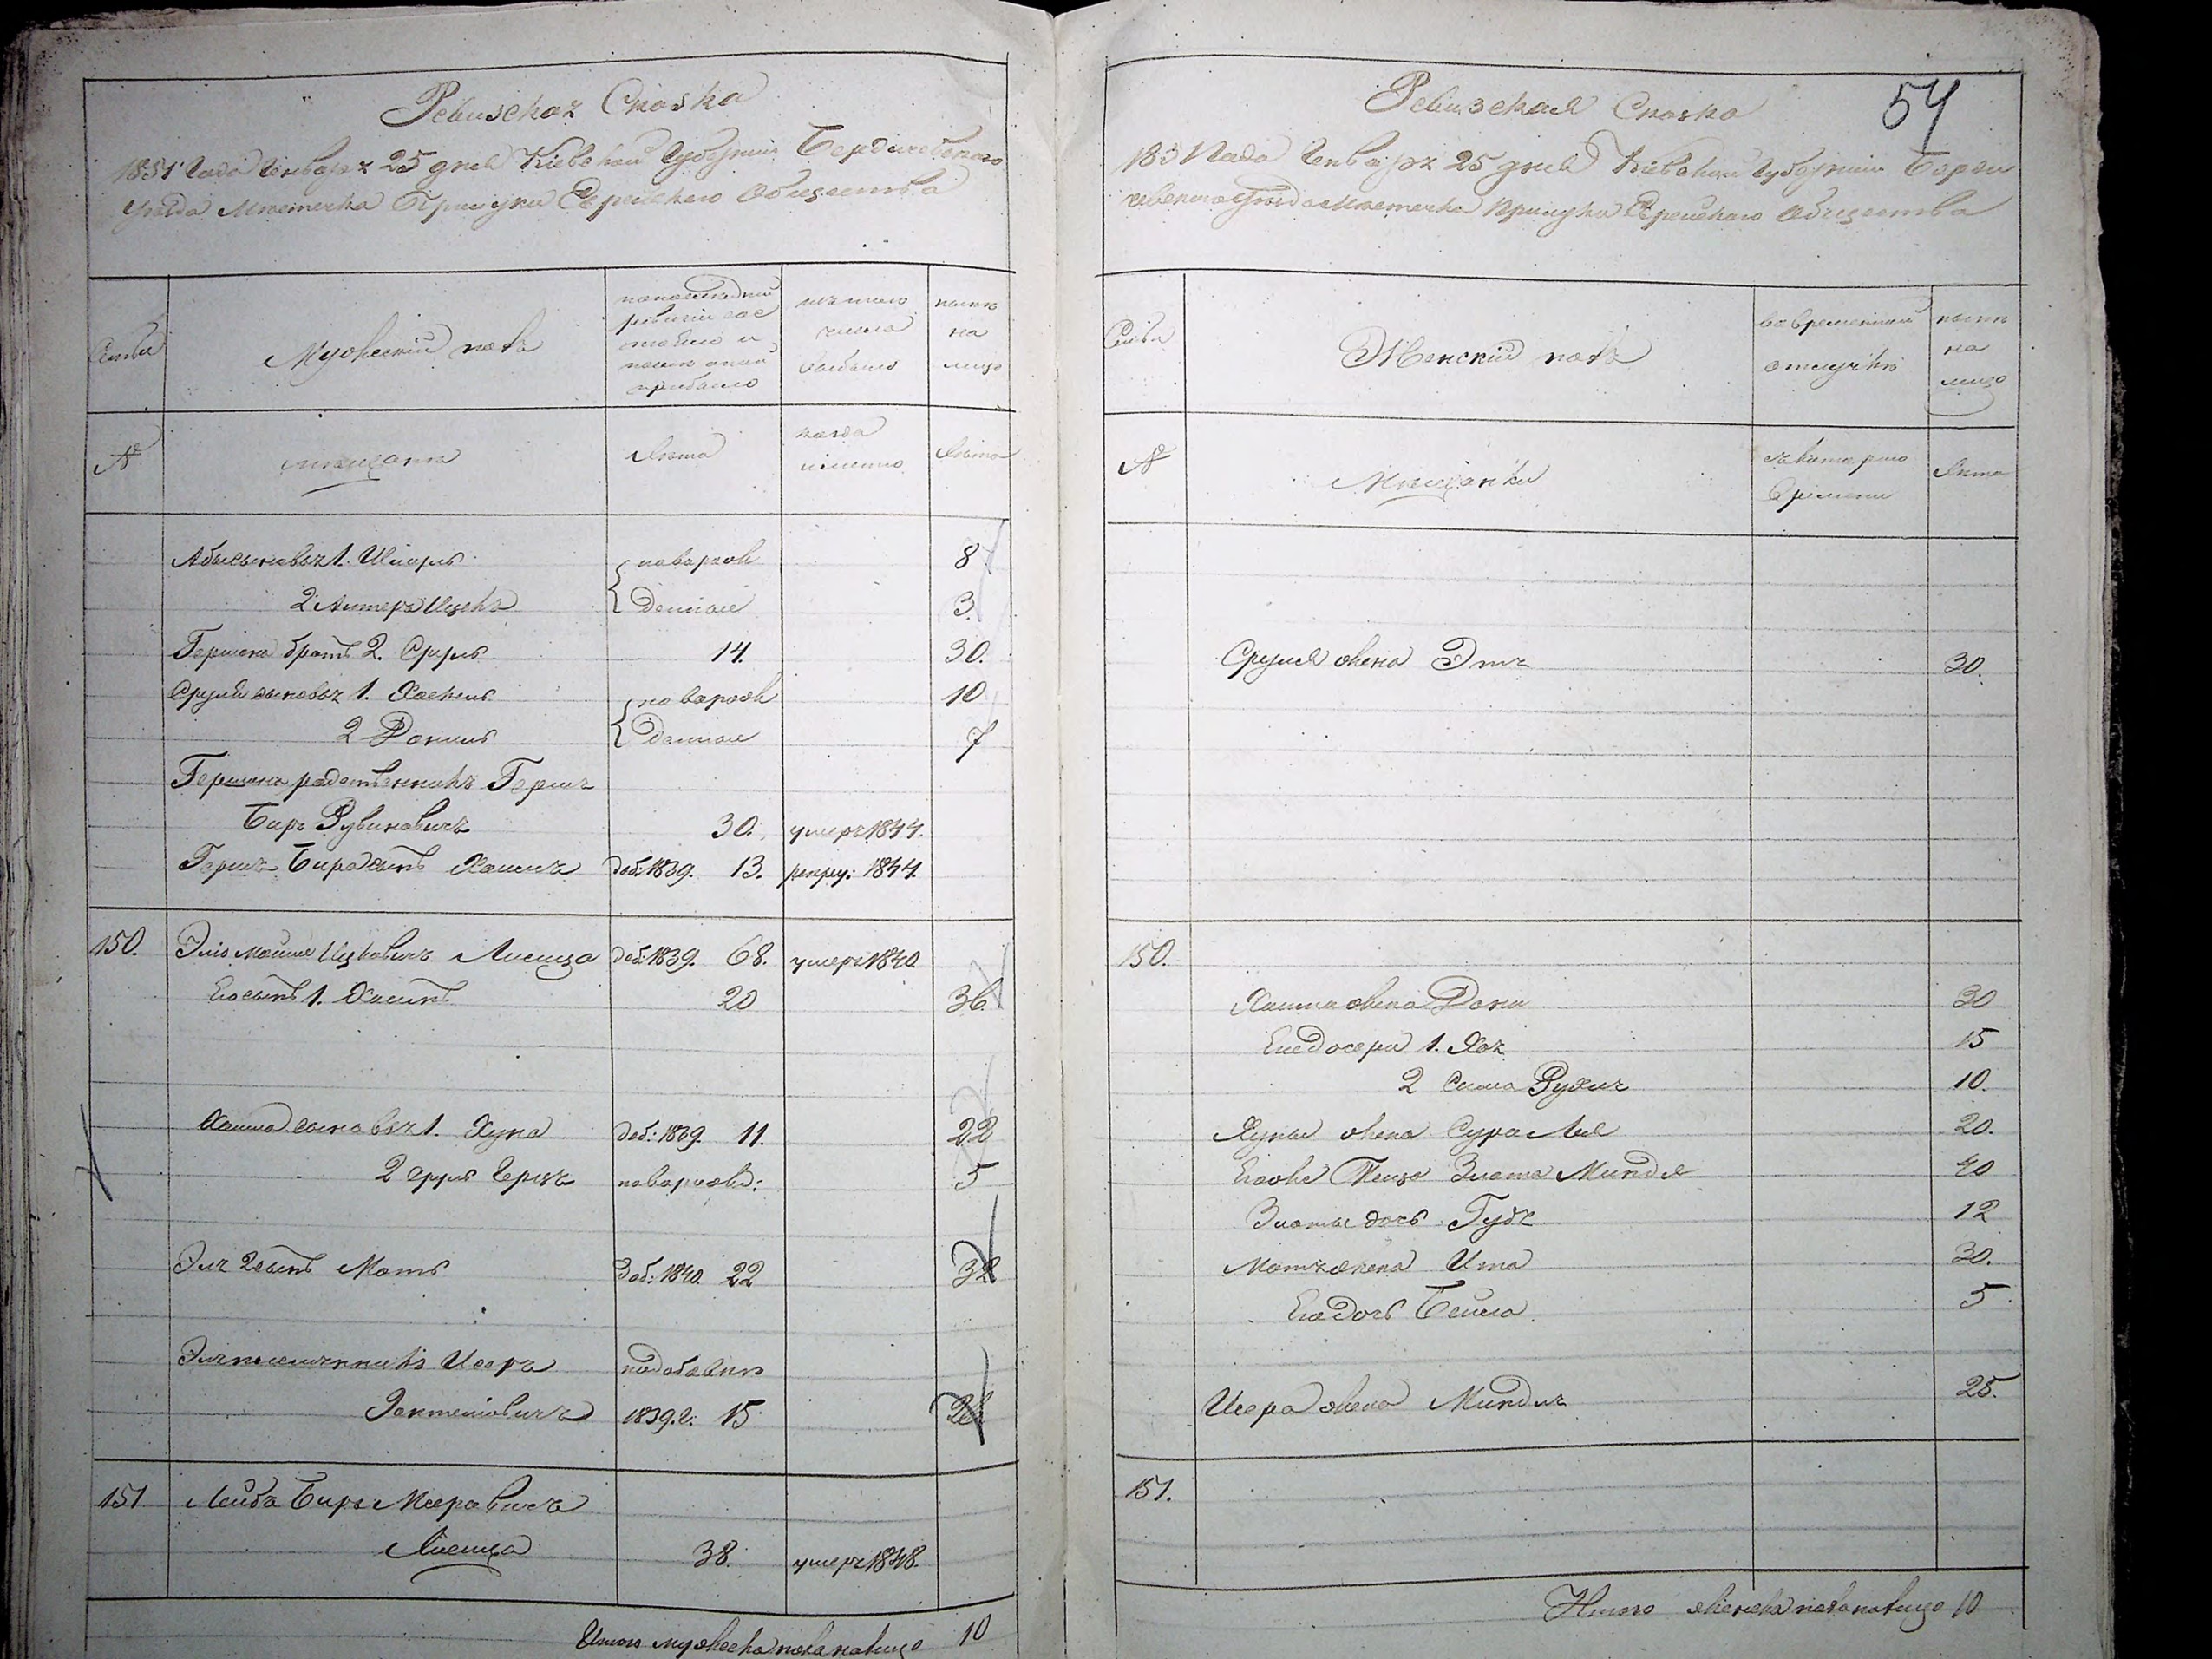 Ревизская Сказка
1851 Года Генваря 25 дня Кіевской Губерніи Бердичевскаго
уезда Местечка Прилуки Еврейскаго Общества
Семьи
Мужескій полъ
по последней
ревизіи сос
тояло и
после оной
прибыло
изъ того
числа
выбыло
ныне
на
лицо
№
мещане
Лета
когда
именно
Лета
Абы сыновья 1. Шмерль новорож 8
2 Алтеръ Ицекъ денные 3.
Гершена братъ 2. Сруль 14. 30.
Сруля сыновья 1. Хаскель новорож 10
2 Данилъ денные 7
Гершена родственникъ Гершъ
Беръ Рувиновичъ 30. умеръ 1844.
Гершъ Бера сынъ Хаимъ доб: 1839. 13. рекру: 1844.
150. Эліо Мошко Ицковичъ Лисица доб: 1839. 68. умеръ 1840
Его сынъ 1. Хаимъ 20 36.
Хаима сыновья 1. Хуна доб: 1839. 11. 22
2 Сруль Герцъ новорожд: 5
Эля 2 сынъ Моть доб: 1840. 22 32
Эля племянникъ Исеръ подобавки
1839. г: 15 26
151 Лейба Беръ Меровичъ
Лисица 38. умеръ 1848.
Итого мужеска пола на лицо 10
54
Ревизская Сказка
1851 Года Генваря 25 дня Кіевской Губерніи Берди
чевскаго Уезда Местечка Прилуки Еврейскаго Общества
Семьи
Женскій полъ
во временной
отлучке
ныне
на
лицо
№
Мещанки
съ котораго
времени
Лета
Сруля жена Этя 30.
150.
Хаима жена Доня 30
Его дочери 1. Хая 15
2 Сима Рухля 10.
Хуны жена Сура Лея 20.
Его же Теща Злота Миндля 40
Злоты дочь Гудя 12
Мотя жена Ита 30.
Его дочь Бейла. 5
Исера жена Миндля 25.
151.
Итого женска пола на лицо 10